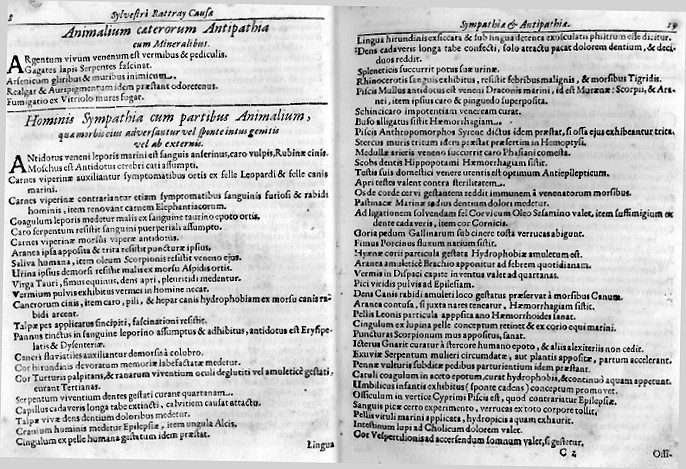 8 Sylvestri Rattray Causæ
Animalium cæterorum Antipathia
cum Mineralibus.
ARgentum vivum venenum est vermibus & pediculis.
Gagates lapis Serpentes fascinat.
Arsenicum gliribus & muribus inimicum.
Realgar & Auripigmentum idem præstant odore tenus.
Fumigatio ex Vitriolo mures fugat.
Hominis Sympathia cum partibus Animalium,
quæ morbis ejus adversantur vel sponte intus genitis
vel ab externis.
ANtidotus veneni leporis marini est sanguis anserinus, caro vulpis, Rubinæ cinis.
Moschus est Antidotus cerebri cati assumpti.
Carnes viperinæ auxiliantur symptomatibus ortis ex felle Leopardi & felle canis
marini.
Carnes viperinæ contrariantur etiam symptomatibus sanguinis furiosi & rabidi
hominis, item renovant carnem Elephantiacorum.
Coagulum leporis medetur malis ex sanguine taurino epoto ortis,
Caro serpentum resistit sanguini puerperali assumpto.
Carnes viperinæ morsus viperæ antidotus.
Aranea ipsa apposita & trita resistit puncturæ ipsius,
Saliva humana, item oleum Scorpionis resistit veneno ejus.
Urina ipsius demorsi resistit malis ex morsu Aspidis ortis.
Virga Tauri, fimus equinus, dens apri, pleuritidi medentur.
Vermium pulvis exhibitus vermes in homine necat.
Cancrorum cinis, item caro, pili, & hepar canis hydrophobiam ex morsu canis ra-
bidi arcent.
Talpæ pes applicatus sincipiti, fascinationi resistit.
Pannus tinctus in sanguine leporino assumptus & adhibitus, antidotus est Erysipe-
latis & Dysenteriæ.
Cancri fluviatiles auxiliantur demorsis à colubro.
Cor hirundinis devoratum memoriæ labefactatæ medetur.
Cor Turturis palpitans, & ranarum viventium oculi deglutiti vel amuletice gestati,
curant Tertianas.
Serpentum viventium dentes gestati curant quartanam.
Capillus cadaveris longa tabe extincti, calvitiem causat attactu.
Talpæ vivæ dens dentium doloribus medetur.
Cranium hominis medetur Epilepsiæ, item ungula Alcis.
Cingulum ex pelle humana gestatum idem præstat.
Lingua
Sympathiæ & Antipathiæ. 19
Lingua hirundinis exsiccata & sub lingua detenta exosculatis philtrum esse dicitur.
Dens cadaveris longa tabe confecti, solo attactu pacat dolorem dentium, & deci-
duos reddit.
Spleneticis succurrit potus suæ urinæ.
Rhinocerotis sanguis exhibitus, resistit febribus malignis, & morsibus Tigridis.
Piscis Mullus antidotus est veneni Draconis marini, id est Murænæ: Scorpii, & Ara-
nei, item ipsius caro & pinguedo superposita.
Schinci caro impotentiam veneream curat.
Bufo alligatus sistit Hæmorrhagiam.
Piscis Anthropomorphos Syrene dictus idem præstat, si ossa ejus exhibeantur trita.
Stercus muris tritum idem præstat præsertim in Hemoptysi.
Medullæ arietis veneno succurrit caro Phasiani comesta.
Scobs dentis Hippopotami Hæmorrhagiam sistit.
Testis suis domestici venere utentis est optimum Antiepilepticum.
Apri testes valent contra sterilitatem.
Os de corde cervi gestantem reddit immunem à venenatorum morsibus.
Pastinacæ Marinæ radius dentium dolori medetur.
Ad ligationem solvendam fel Corvi cum Oleo Sesamino valet, item suffimigium ex
dente cadaveris, item cor Cornicis.
Coria pedum Gallinarum sub cinere tosta verrucas abigunt.
Fimus Porcinus fluxum narium sistit.
Hyænæ corii particula gestata Hydrophobiæ amuletum est.
Aranea amuletice Brachio apponitur ad febrem quotidianam.
Vermis in Dipsaci capite inventus valet ad quartanas.
Pici viridis pulvis ad Epilepsiam.
Dens Canis rabidi amuleti loco gestatus præservat à morsibus Canum.
Aranea contusa, si juxta nares teneatur, Hæmorrhagiam sistit.
Pellis Leonis particula apposita ano Hæmorrhoides sanat.
Cingulum ex lupina pelle conceptum retinet & ex corio equi marini.
Puncturas Scorpionum mus appositus, sanat.
Icterus Gnariæ curatur à stercore humano epoto, & aliis alexiteriis non cedit.
Exuviæ Serpentum mulieri circumdatæ, aut plantis appositæ, partum accelerant.
Pennæ vulturis subditæ pedibus parturientium idem præstant.
Catuli coagulum in aceto epotum curat hydrophobis, & continuò aquam appetunt.
Umbilicus infantis exhibitus (sponte cadens) conceptum promovet.
Ossiculum in vertice Cyprini Piscis est, quod contrariatur Epilepsiæ.
Sanguis picæ certo experimento, verrucas ex toto corpore tollit,
Pellis vituli marini applicata, hydropicis aquam exhaurit.
Intestinum lupi ad Cholicum dolorem valet.
Cor Vespertilionis ad accersendum somnum valet, si gestetur,
C 2 Ossi-